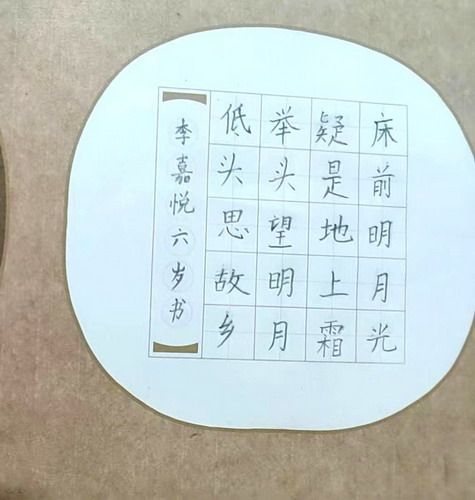 床前明月光
疑是地上霜
举头望明月
低头思故乡
李嘉悦六岁书